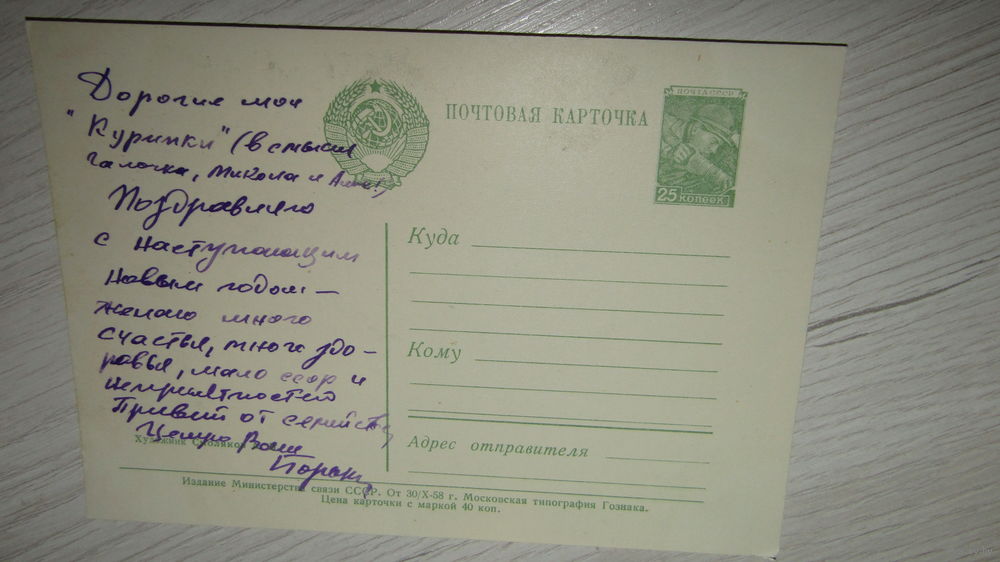 Дорогие мои
"Куринки" (в смысле
Галочка, Микола и
Поздравляю
с наступающим
Новым годом —
желаю много
счастья, много здо-
ровья, мало ссор и
неприятностей
Привет от семейства
Целую Ваш
Художник
ПОЧТОВАЯ КАРТОЧКА
ПОЧТА СССР
25 КОПЕЕК
Куда
Кому
Адрес отправителя
Издание Министерства связи СССР. От 30/X-58 г. Московская типография Гознака.
Цена карточки с маркой 40 коп.